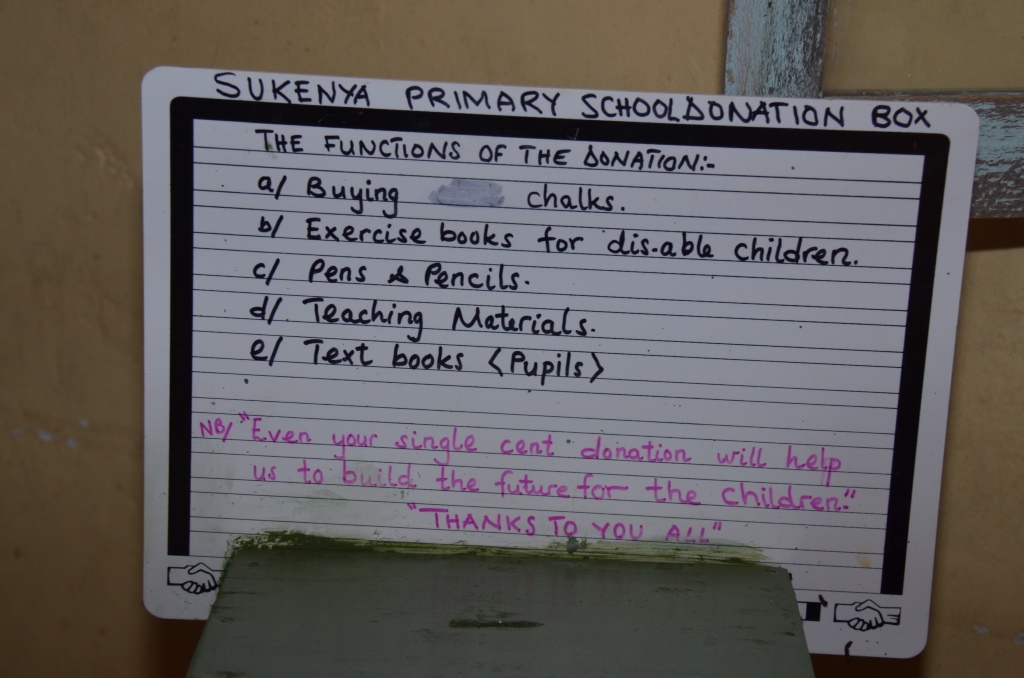 SUKENYA PRIMARY SCHOOL DONATION BOX
THE FUNCTIONS OF THE DONATION:-
a/ Buying chalks.
b/ Exercise books for dis-able children.
c/ Pens & Pencils.
d/ Teaching Materials.
e/ Text books <Pupils>
NB/ "Even your single cent donation will help
us to build the future for the children."
"THANKS TO YOU ALL"